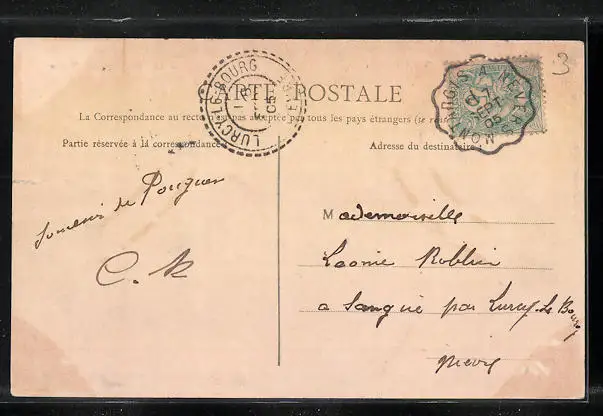 CARTE POSTALE
3
La Correspondance au recto n'est pas acceptée par tous les pays étrangers (se
Partie réservée à la correspondance
Adresse du destinataire
LURCY-LE-BOURG
05
MONTARGIS A NEVERS
SEPT
05
Souvenir de Pougues
C. K
Mademoiselle
Léonie Roblin
a Sangué par Lurcy-le Bourg
Nièvre